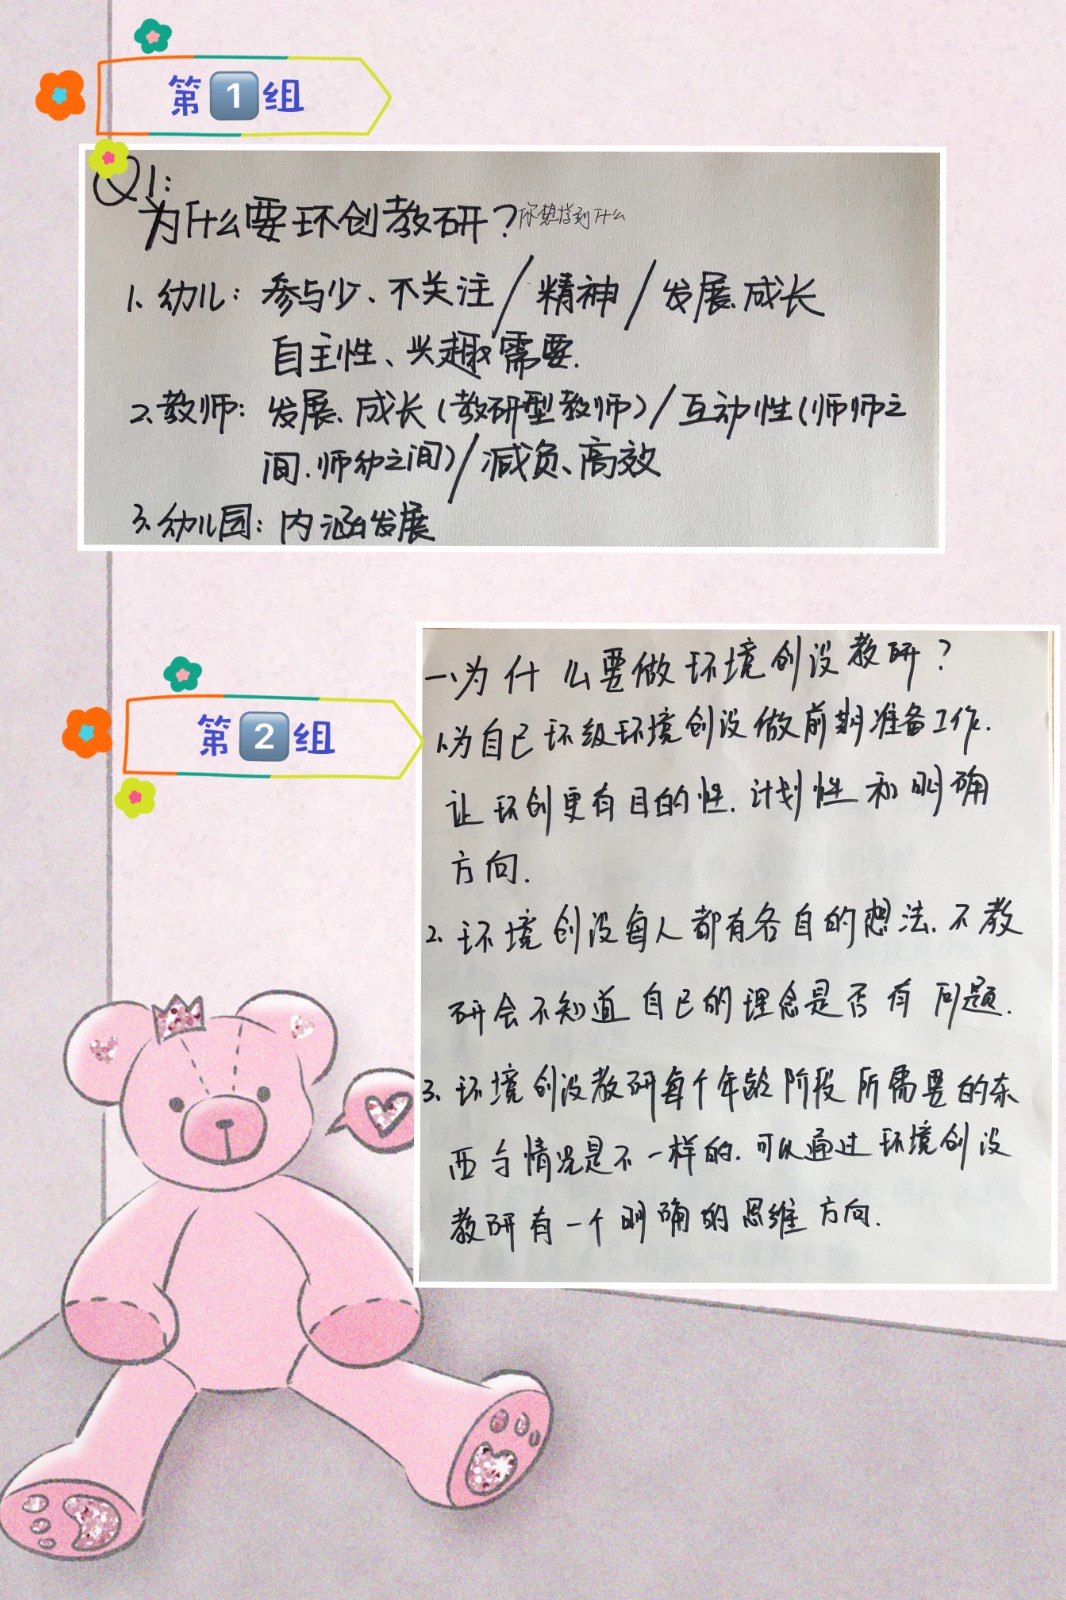 第1组
Q1:
为什么要环创教研?你想学到什么
1、幼儿：参与少、不关注/精神/发展、成长
自主性、兴趣需要.
2、教师：发展、成长(教研型教师)/互动性(师师之
间、师幼之间)/减负、高效
3、幼儿园：内涵发展
第2组
一、为什么要做环境创设教研?
1、为自己环级环境创设做前期准备工作.
让环创更有目的性、计划性和明确
方向.
2、环境创设每人都有各自的想法、不教
研会不知道自己的理念是否有问题.
3、环境创设教研每个年龄阶段所需要的东
西与情况是不一样的、可以通过环境创设
教研有一个明确的思维方向.